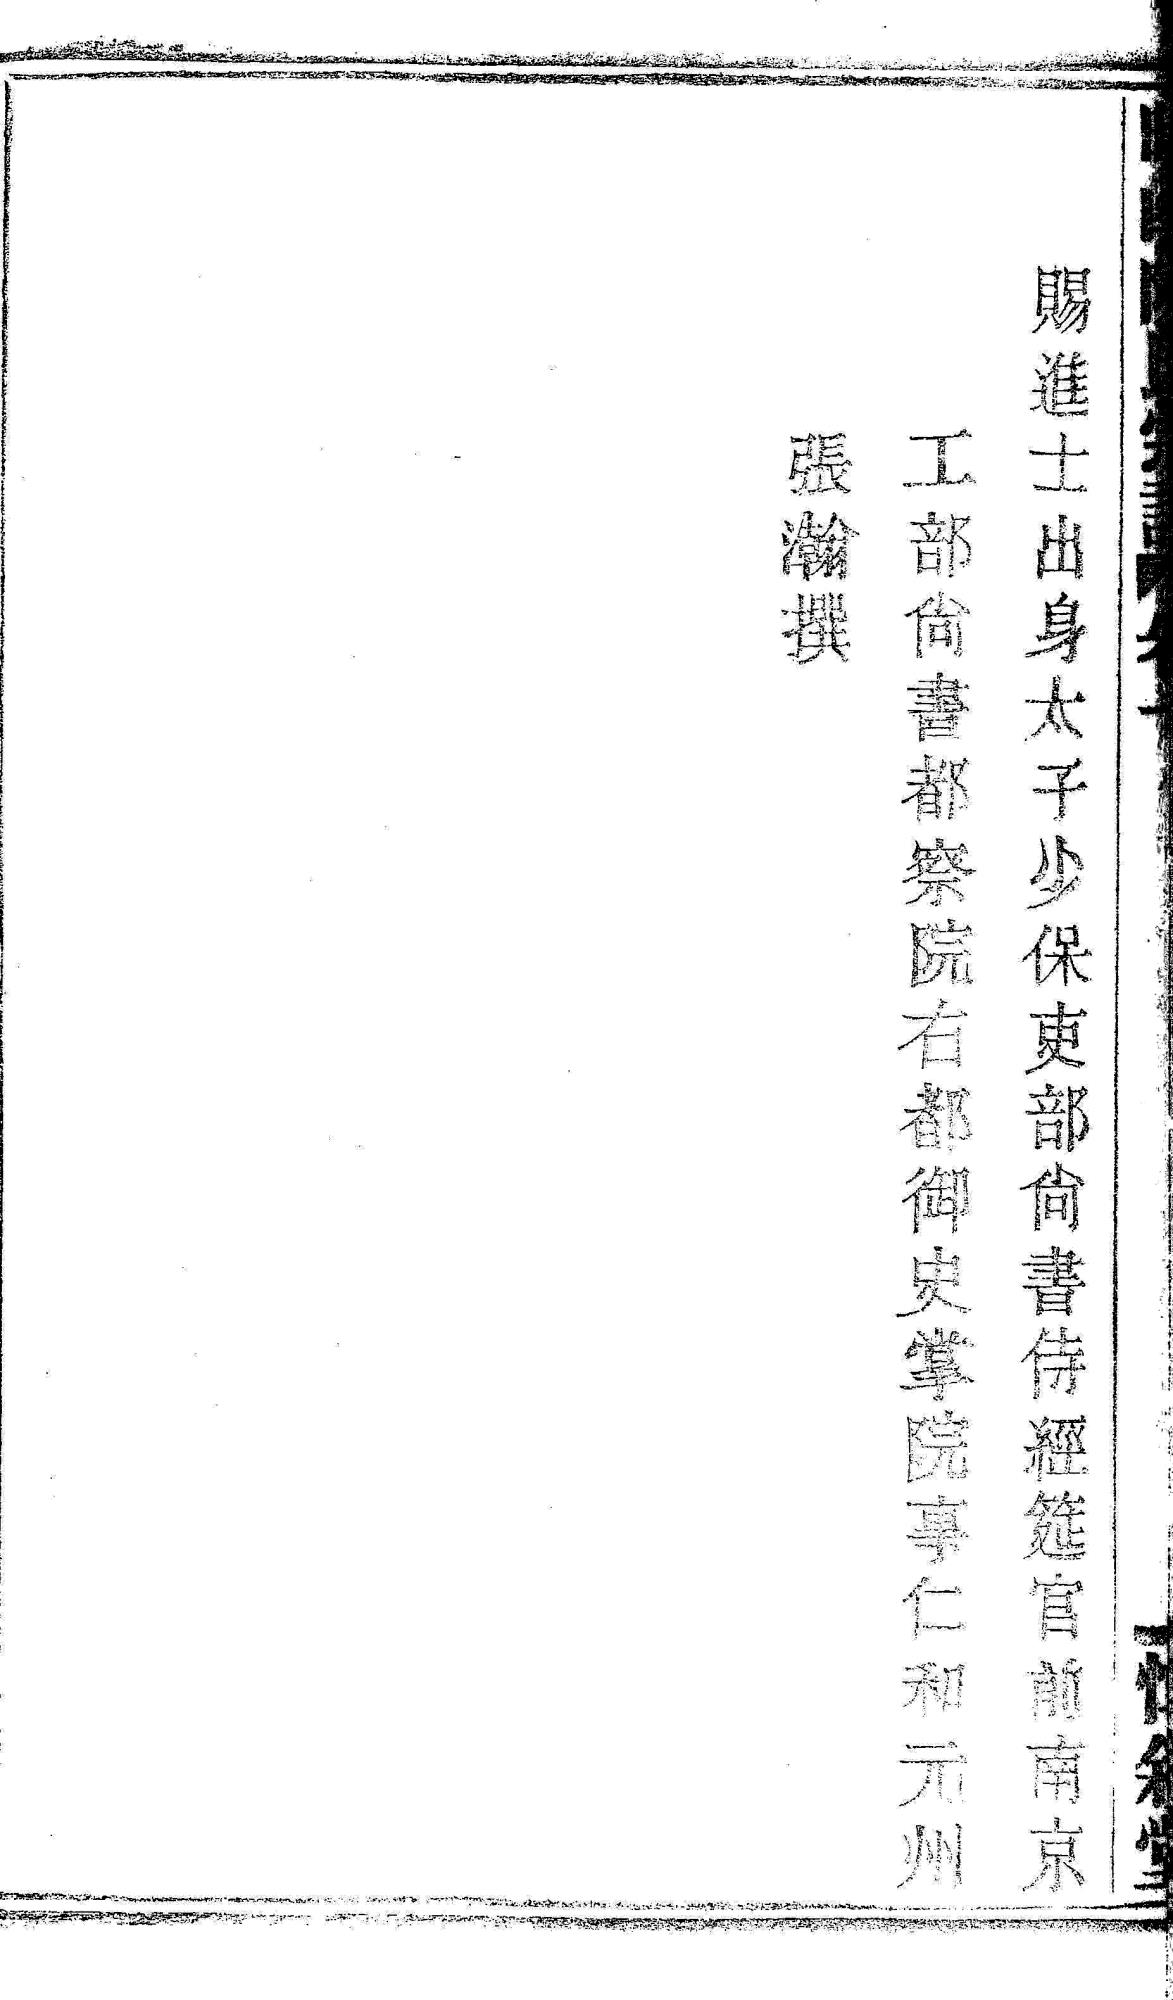 賜進士出身太子少保吏部尙書侍經筵官前南京
工部尙書都察院右都御史掌院事仁和元州
張瀚撰